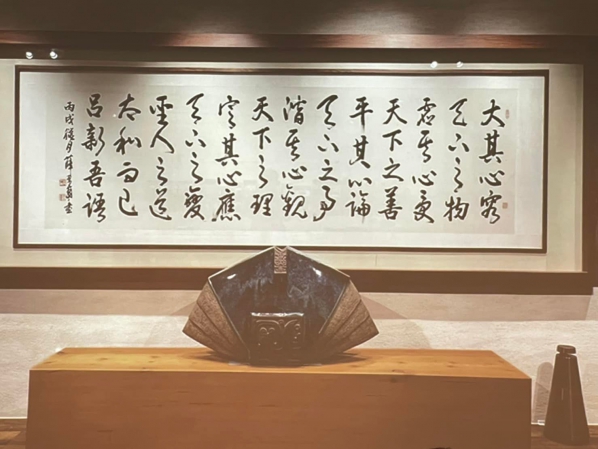 大其心容
天下之物
虛其心受
天下之善
平其心論
天下之事
潛其心觀
天下之理
定其心應
天下之變
聖人之道
太和而已
呂新吾語
丙戌月薛書